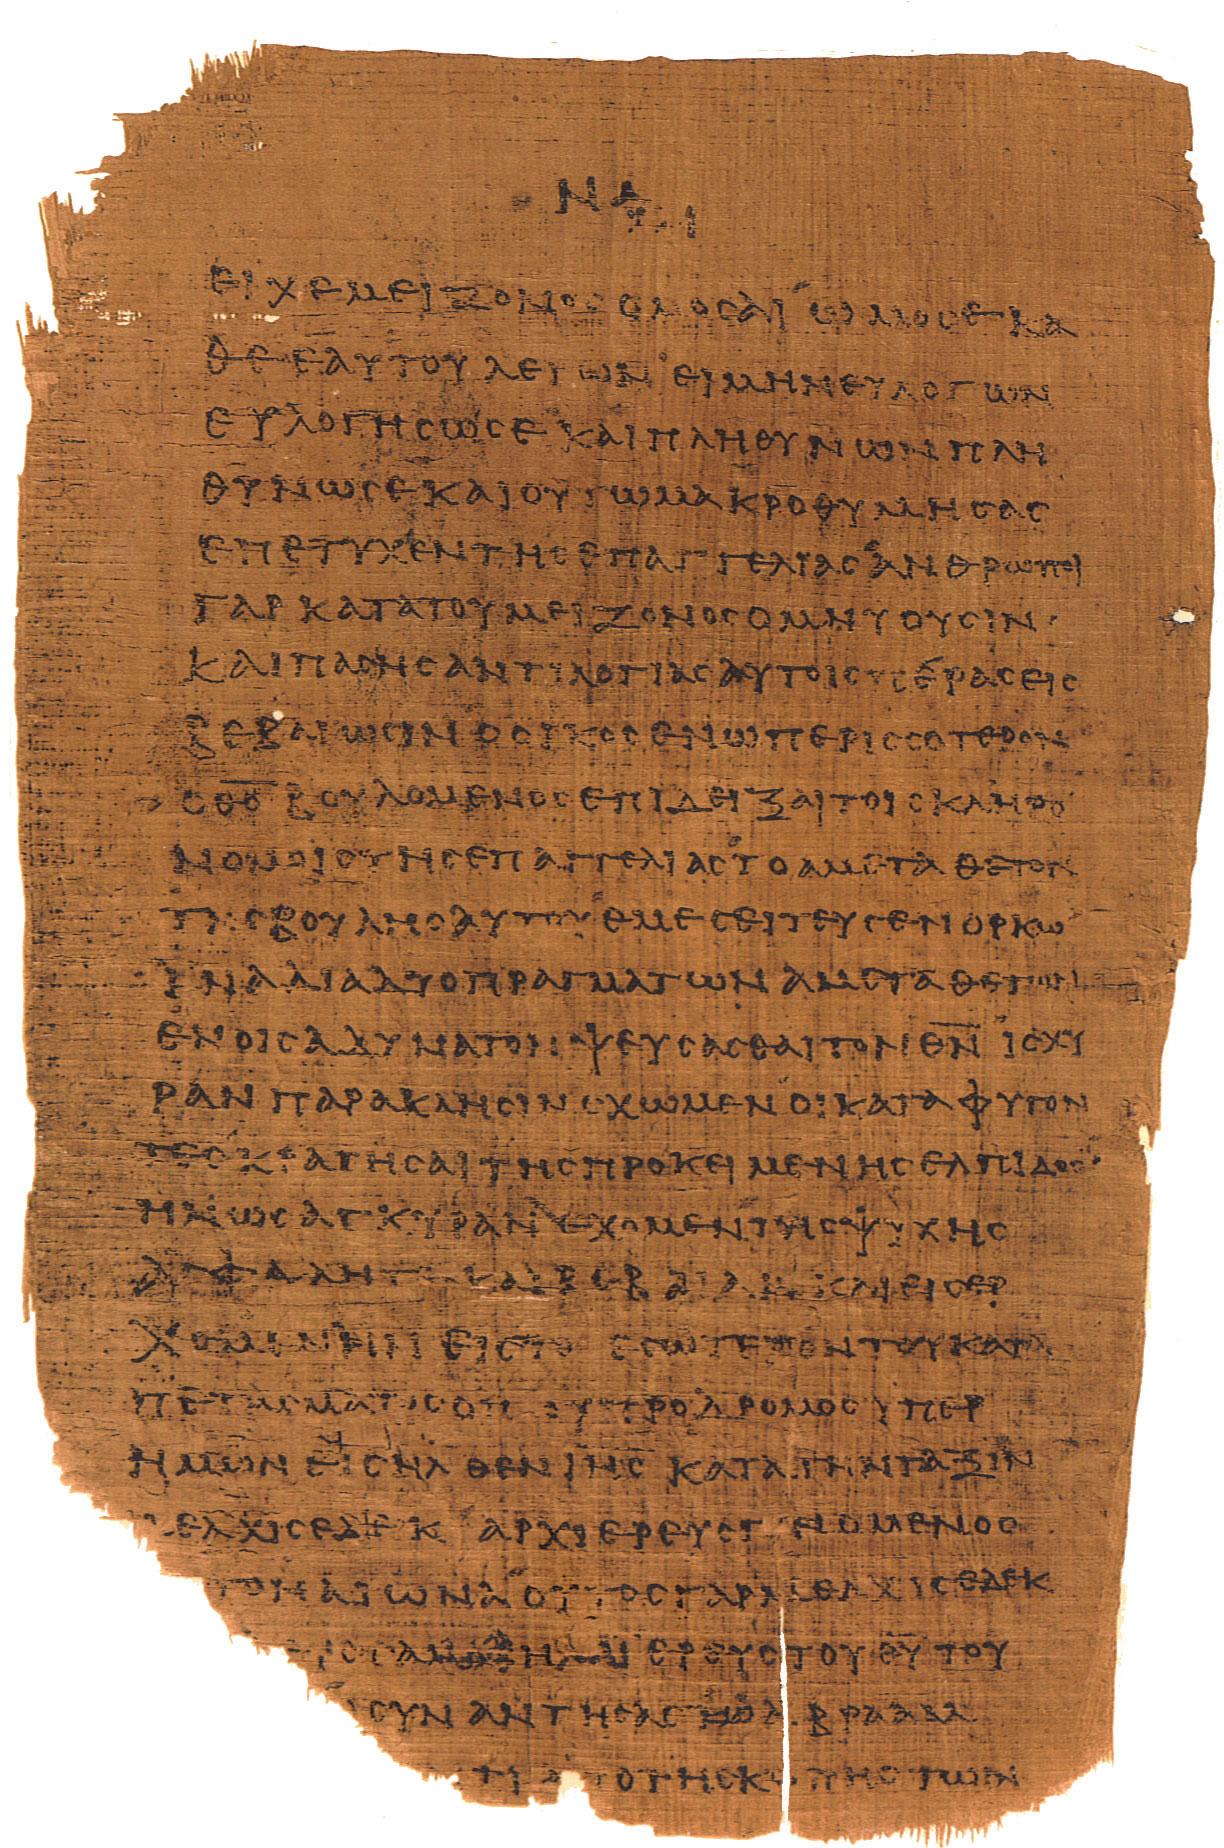 ΝΔ
ΕΙΧΕΜΕΙΖΟΝΟΣ ΟΜΟΣΑΙ ΩΜΟΣΕΚΑ
ΘΕΕΑΥΤΟΥ ΛΕΓΩΝ ΕΙΜΗΝΕΥΛΟΓΩΝ
ΕΥΛΟΓΗΣΩΣΕ ΚΑΙΠΛΗΘΥΝΩΝΠΛΗ
ΘΥΝΩΣΕΚΑΙΟΥΤΩΜΑΚΡΟΘΥΜΗΣΑΣ
ΕΠΕΤΥΧΕΝΤΗΣΕΠΑΓΓΕΛΙΑΣΑΝΘΡΩΠΟΙ
ΓΑΡΚΑΤΑΤΟΥΜΕΙΖΟΝΟΣΟΜΝΥΟΥΣΙΝ
ΚΑΙΠΑΣΗΣΑΝΤΙΛΟΓΙΑΣΑΥΤΟΙΣΠΕΡΑΣΕΙΣ
ΒΕΒΑΙΩΣΙΝ ΟΡΚΟΣΕΝΩΠΕΡΙΣΣΟΤΕΡΟΝ
ΟΘΣ ΒΟΥΛΟΜΕΝΟΣΕΠΙΔΕΙΞΑΙΤΟΙΣΚΛΗΡΟ
ΝΟΜΟΙΣΤΗΣΕΠΑΓΓΕΛΙΑΣΤΟΑΜΕΤΑΘΕΤΟΝ
ΤΗΣΒΟΥΛΗΣΑΥΤΟΥΕΜΕΣΕΙΤΕΥΣΕΝΟΡΚΩ
ΙΝΑΔΙΑΔΥΟΠΡΑΓΜΑΤΩΝΑΜΕΤΑΘΕΤΩΝ
ΕΝΟΙΣΑΔΥΝΑΤΟΝΨΕΥΣΑΣΘΑΙΤΟΝΘΝ ΙΣΧΥ
ΡΑΝΠΑΡΑΚΛΗΣΙΝΕΧΩΜΕΝΟΙΚΑΤΑΦΥΓΟΝ
ΤΕΣΚΡΑΤΗΣΑΙΤΗΣΠΡΟΚΕΙΜΕΝΗΣΕΛΠΙΔΟΣ
ΗΝΩΣΑΓΚΥΡΑΝΕΧΟΜΕΝΤΗΣΨΥΧΗΣ
ΑΣΦΑΛΗ ΚΑΙΒΕΒΑΙΑΝ ΚΑΙΕΙΣΕΡ
ΧΟΜΕΝΗΝ ΕΙΣΤΟ ΕΣΩΤΕΡΟΝΤΟΥΚΑΤΑ
ΠΕΤΑΣΜΑΤΟΣΟΠΟΥΠΡΟΔΡΟΜΟΣΥΠΕΡ
ΗΜΩΝΕΙΣΗΛΘΕΝΙΗΣ ΚΑΤΑΤΗΝΤΑΞΙΝ
ΜΕΛΧΙΣΕΔΕΚ ΑΡΧΙΕΡΕΥΣΓΕΝΟΜΕΝΟΣ
ΤΟΝΑΙΩΝΑΟΥΤΟΣΓΑΡΜΕΛΧΙΣΕΔΕΚ
ΙΕΡΕΥΣΤΟΥΘΥΤΟΥ
ΣΥΝΑΝΤΗΣΑΣ ΑΒΡΑΑΜ
ΤΙ ΑΠΟΤΗΣΚΟΠΗΣΤΩΝ